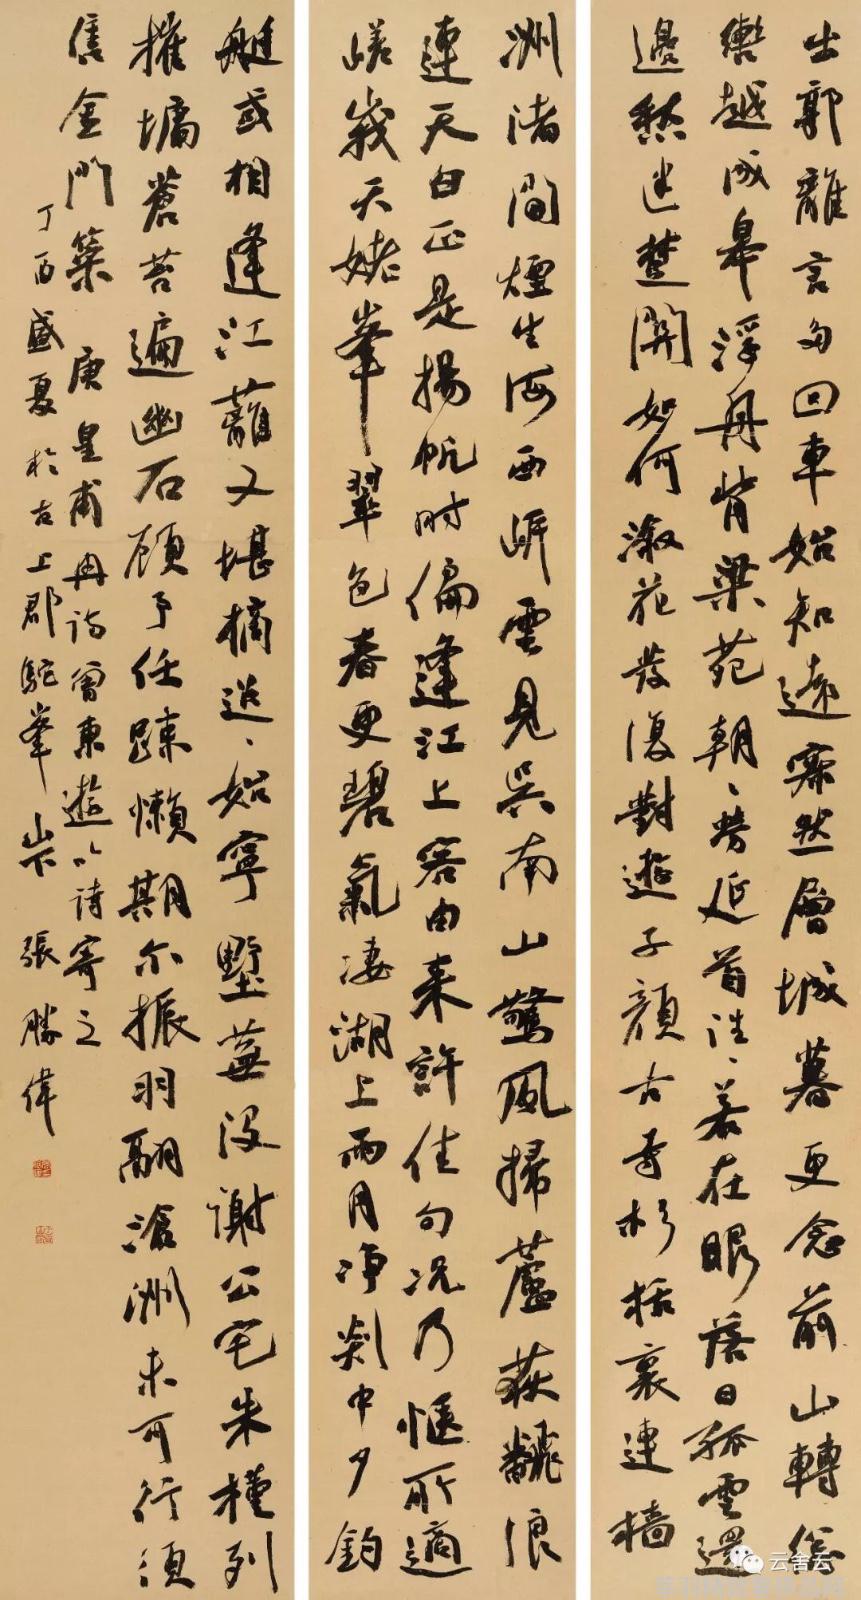 出郭離言多回車始知遠寂然層城暮更念前山轉總
轡越成皋浮舟背梁苑朝、勞延首往、若在眼落日孤雲還
邊愁迷楚關如何淑花發復對遊子顏古寺杉栝裏連檣
洲渚間煙生海西岸雲見吳南山驚風掃蘆荻翻浪
連天白正是揚帆時偏逢江上客由来許佳句況乃愜所適
嵯峩天姥峯翠色春更碧氣凄湖上雨月淨剡中夕釣
艇或相逢江蘺又堪摘迢、始寧墅蕪沒謝公宅朱槿列
摧墉蒼苔遍幽石顧予任疎懶期尔振羽翮滄洲未可行須
售金門策 唐皇甫冉詩曾東遊以詩寄之
丁酉盛夏於古上郡駝峯山下 張勝偉
云舍云